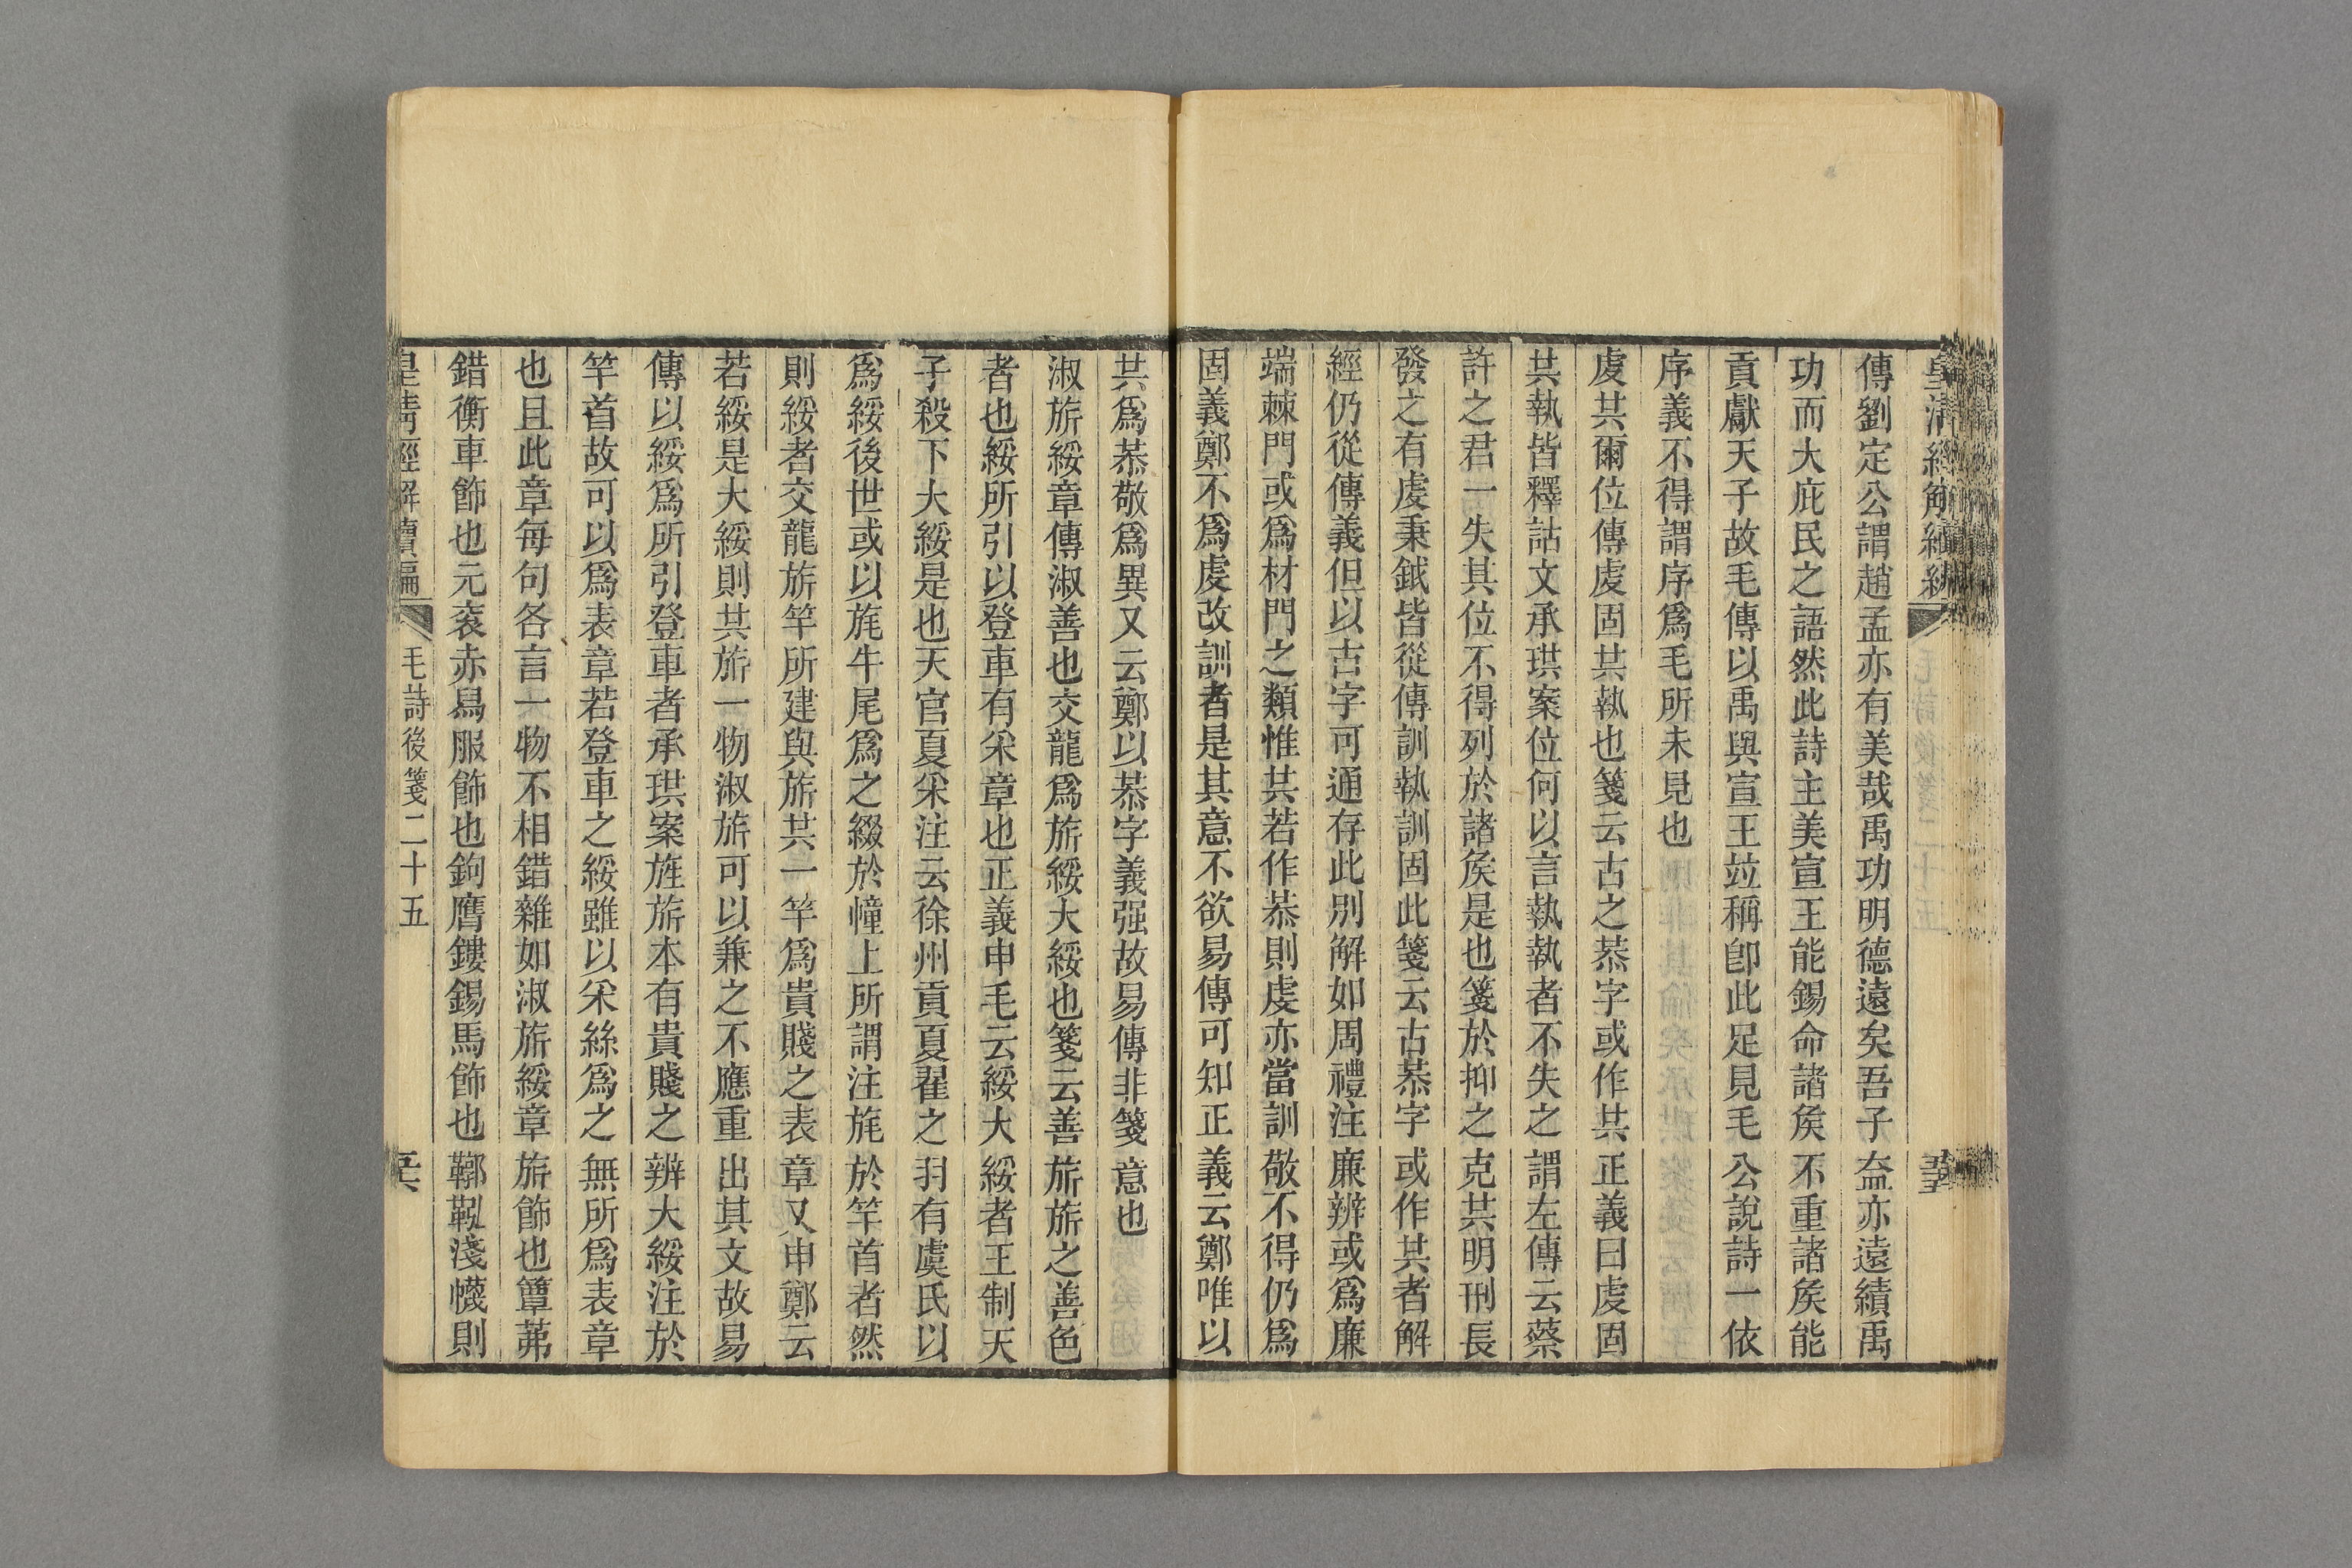 傳劉定公謂趙孟亦有美哉禹功明德遠矣吾子盍亦遠績禹
功而大庇民之語然此詩主美宣王能錫命諸矦不重諸矦能
貢獻天子故毛傳以禹與宣王竝稱卽此足見毛公說詩一依
序義不得謂序爲毛所未見也
虔共爾位傳虔固共執也箋云古之恭字或作共正義曰虔固
共執皆釋詁文承珙案位何以言執執者不失之謂左傳云蔡
許之君一失其位不得列於諸矦是也箋於抑之克共明刑長
發之有虔秉鉞皆從傳訓執訓固此箋云古恭字或作共者解
經仍從傳義但以古字可通存此別解如周禮注廉辨或爲廉
端棘門或爲材門之類惟共若作恭則虔亦當訓敬不得仍爲
固義鄭不爲虔改訓者是其意不欲易傳可知正義云鄭唯以
共爲恭敬爲異又云鄭以恭字義强故易傳非箋意也
淑旂綏章傳淑善也交龍爲旂綏大綏也箋云善旂旂之善色
者也綏所引以登車有采章也正義申毛云綏大綏者王制天
子殺下大綏是也天官夏采注云徐州貢夏翟之羽有虞氏以
爲綏後世或以旄牛尾爲之綴於幢上所謂注旄於竿首者然
則綏者交龍旂竿所建與旂共一竿爲貴賤之表章又申鄭云
若綏是大綏則共旂一物淑旂可以兼之不應重出其文故易
傳以綏爲所引登車者承珙案旌旂本有貴賤之辨大綏注於
竿首故可以爲表章若登車之綏雖以采絲爲之無所爲表章
也且此章每句各言一物不相錯雜如淑旂綏章旂飾也簟茀
錯衡車飾也元袞赤舄服飾也鉤膺鏤錫馬飾也鞹鞃淺幭則
皇清經解續編 毛詩後箋二十五